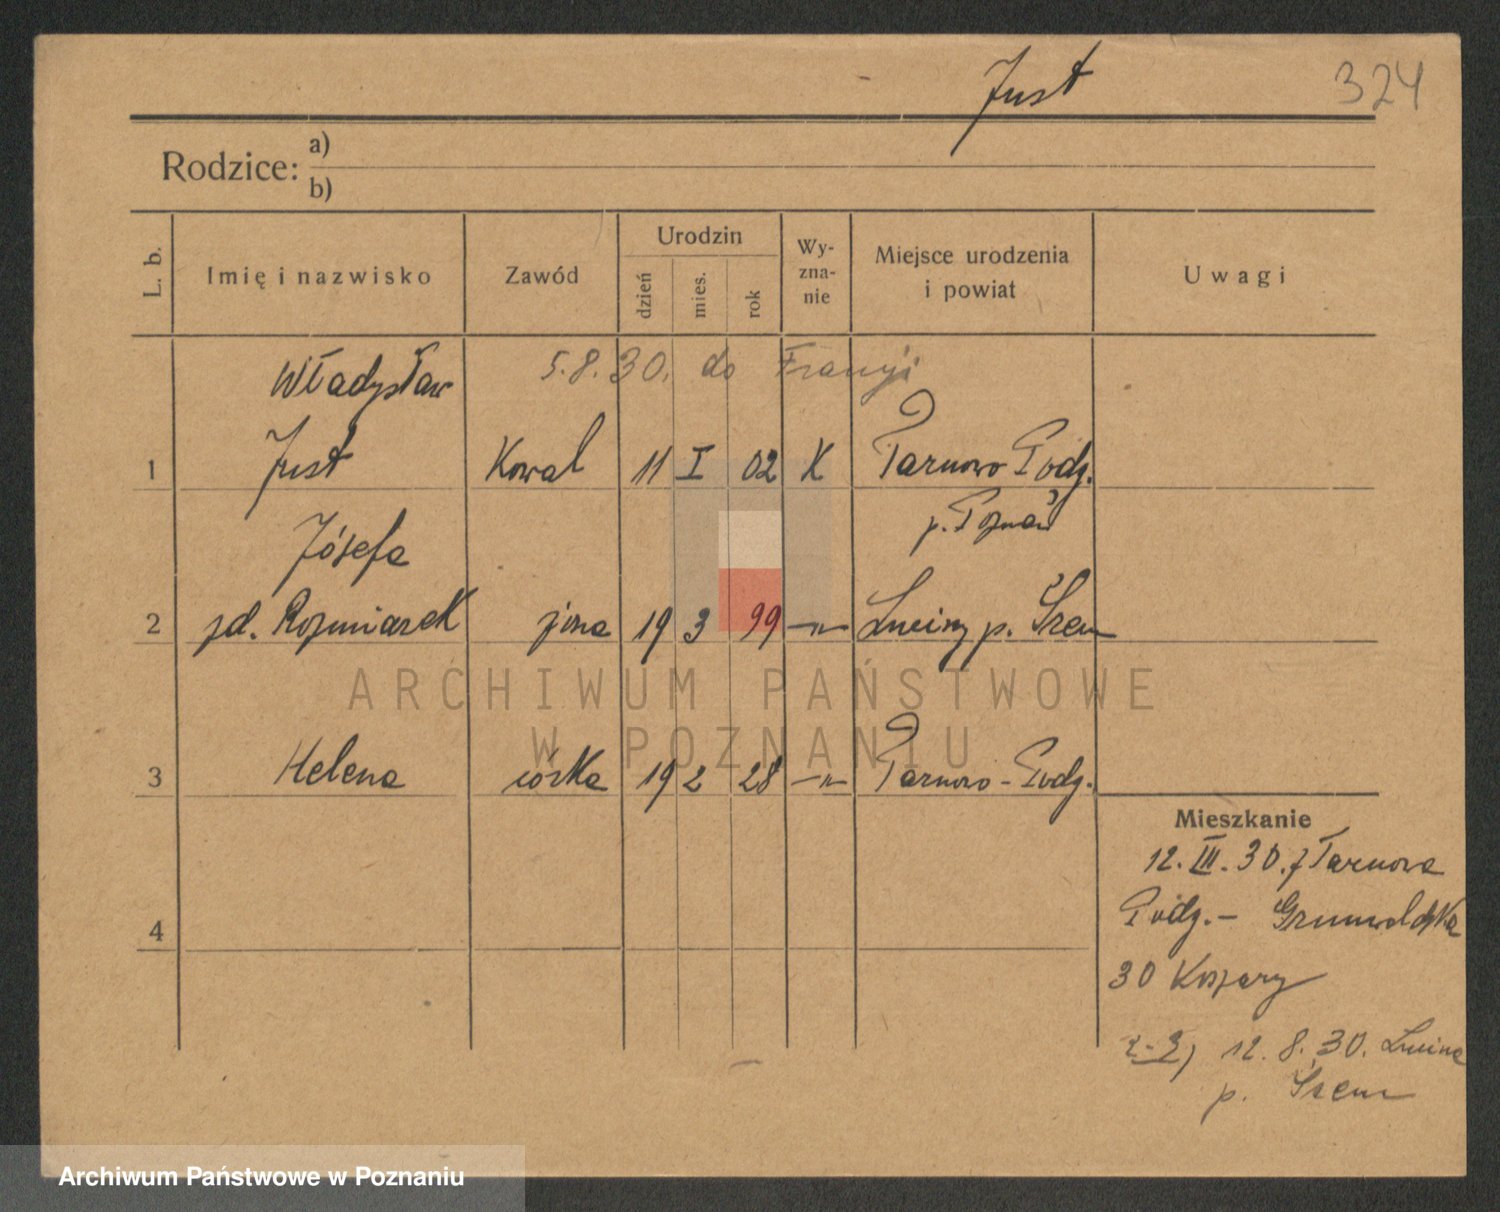 Just 324
Rodzice: a)
b)
L. b. Imię i nazwisko Zawód Urodzin dzień mies. rok Wy-zna-nie Miejsce urodzenia i powiat Uwagi
Władysław 5.8.30. do Francji
1 Just Kowal 11 I 02 K Tarnowo Podg.
p. Poznań
Józefa
2 zd. Rozmiarek żona 19 3 99 —„— Luciny p. Śrem
ARCHIWUM PAŃSTWOWE
W POZNANIU
3 Helena córka 19 2 28 —„— Tarnowo - Podg.
Mieszkanie
12. III. 30. z Tarnowa
Podg. - Grunwaldzka
4
30 Koszary
2-3) 12. 8. 30.
p. Śrem
Archiwum Państwowe w Poznaniu